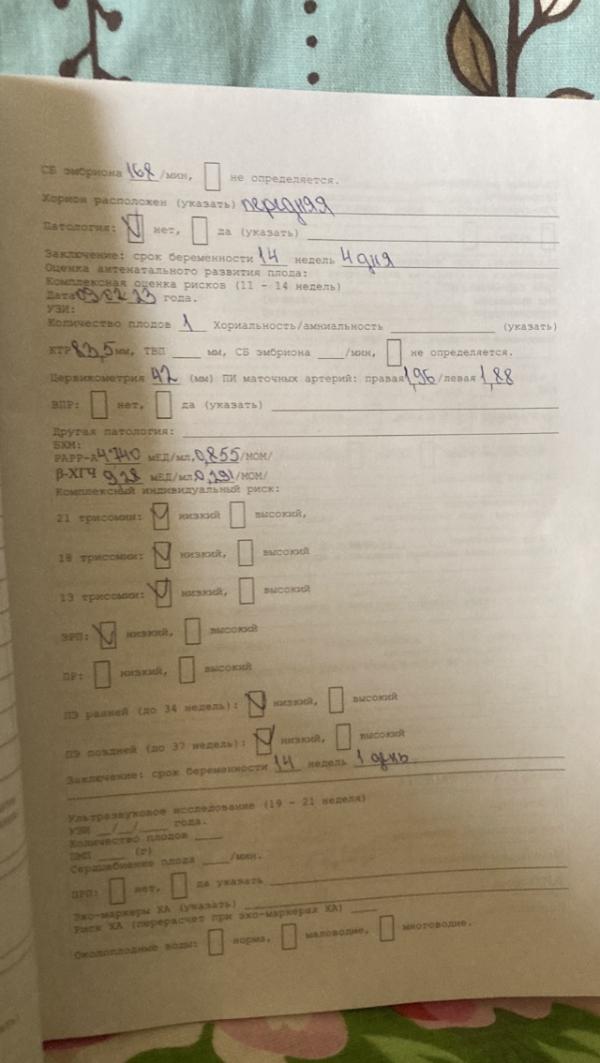 СБ эмбриона 168 /мин, не определяется.
Хорион расположен (указать) передняя
Патология: нет, да (указать)
Заключение: срок беременности 14 недель 4 дня
Оценка антенатального развития плода:
Комплексная оценка рисков (11 - 14 недель)
Дата 09 02 23 года.
УЗИ:
Количество плодов 1 Хориальность/амниальность (указать)
КТР 83,5 мм, ТВП мм, СБ эмбриона /мин, не определяется.
Цервикометрия 42 (мм) ПИ маточных артерий: правая 1,96 /левая 1,88
ВПР: нет, да (указать)
Другая патология:
БХМ:
РАРР-А 4,740 мЕД/мл, 0,855 /МОМ/
β-ХГЧ 9,28 мЕД/мл 0,291 /МОМ/
Комплексный индивидуальный риск:
21 трисомии: низкий высокий,
18 трисомии: низкий, высокий
13 трисомии: низкий, высокий
ЗРП: низкий, высокий
ПР: низкий, высокий
ПЭ ранней (до 34 недель): низкий, высокий
ПЭ поздней (до 37 недель): низкий, высокий
Заключение: срок беременности 14 недель 1 день
Ультразвуковое исследование (19 - 21 неделя)
УЗИ __/__/____ года.
Количество плодов
ПМП (г)
Сердцебиение плода /мин.
ПРП: нет, да указать
Эхо-маркеры ХА (указать)
Риск ХА (перерасчет при эхо-маркерах ХА)
Околоплодные воды: норма, маловодие, многоводие.